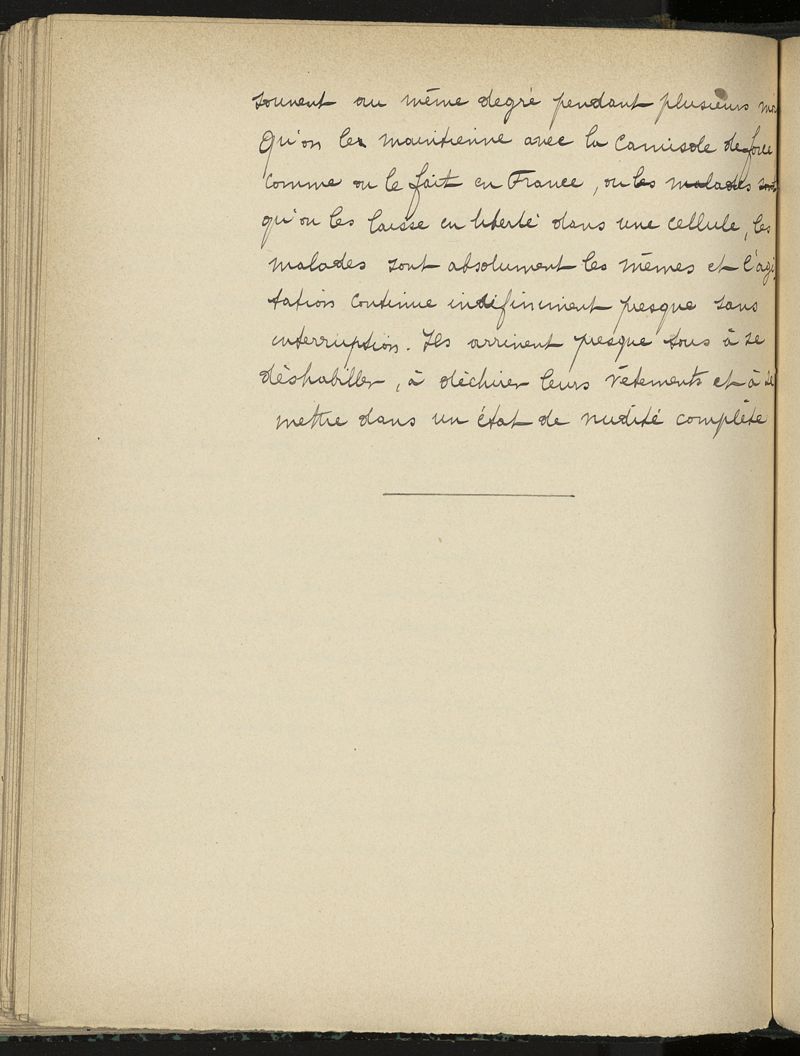 souvent au même degré pendant plusieurs moi
Qu'on les maintienne avec la camisole de force
comme on le fait en France, ou les malades sont
qu'on les laisse en liberté dans une cellule, les
malades sont absolument les mêmes et l'agi
tation continue indéfiniment presque sans
interruption. Ils arrivent presque tous à se
déshabiller, à déchirer leurs vêtements et à se
mettre dans un état de nudité complète